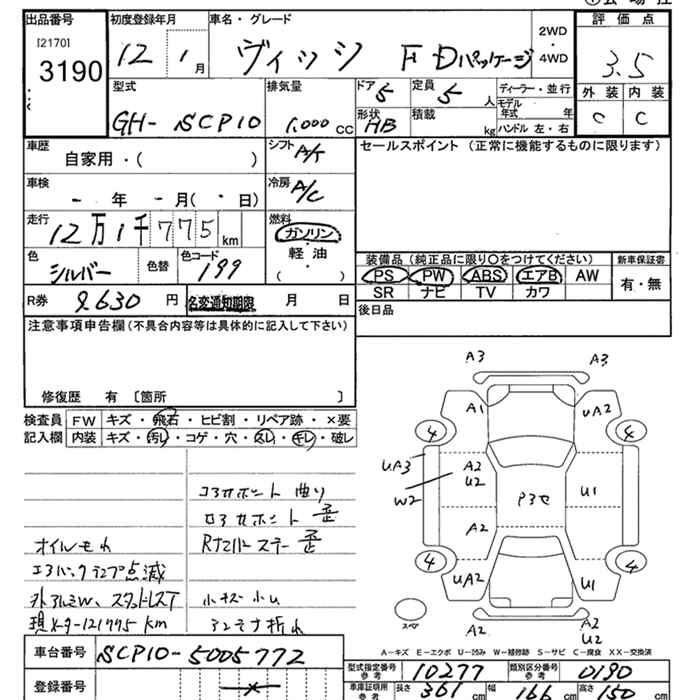 出品番号 初度登録年月 車名・グレード 2WD・4WD 評価点
[2170]
3190 12年 1月 ヴィッツ F Dパッケージ 3.5
型式 排気量 ドア 5 定員 5人 ディーラー・並行 外装 内装
GH-SCP10 1,000cc 形状 HB 積載 kg モデル年式 年 ハンドル 左・右 C C
車歴 自家用・( ) シフト A/T セールスポイント (正常に機能するものに限ります)
車検 - 年 - 月(・日) 冷房 A/C
走行 12万1千775km 燃料 ガソリン
軽・油
( )
色 シルバー 色替 色コード 199
装備品(純正品に限り○をつけてください) 新車保証書
PS PW ABS エアB AW 有・無
SR ナビ TV カワ
R券 9.630円 名変通知期限 月 日 後日品
注意事項申告欄(不具合内容等は具体的に記入して下さい)
修復歴 有 〔箇所 〕
検査員 FW キズ・飛石・ヒビ割・リペア跡・×要
記入欄 内装 キズ・汚し・コゲ・穴・スレ・キレ・破レ
A3 A3
A1 UA2
4 4
UA3 A2 U2 U1
W2 P3セ
A2
4 4
UA2 U1
スペア
A2 A2
U2
コアサポート 曲り
ロアサポート 歪
オイルモレ Rナンバーステー 歪
エアバックランプ点滅
外アルミW、スタッドレスT 小キズ 小U
現メーター121775km アンテナ折れ
A-キズ E-エクボ U-凹み W-補修跡 S-サビ C-腐食 XX-交換済
車台番号 SCP10-5005772
型式指定番号 10277 類別区分番号 0190
登録番号
車庫証明用参考 長さ 361cm 幅 166cm 高さ 150cm